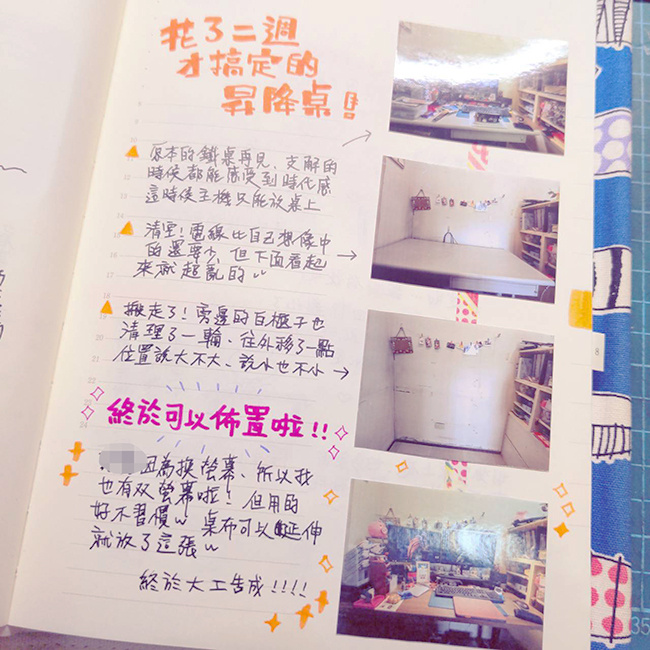 花了二週
才搞定的
昇降桌!
原本的鐵桌再見、支解的
時候都能感受到時代感
這時候主機只能放桌上
清空!電線比自己想像中
的還要少,但下面看起
來就超亂的
搬走了!旁邊的白櫃子也
清理了一輪、往外移了一點
位置說大不大、說小也不小
終於可以佈置啦!!
因為換螢幕、所以我
也有双螢幕啦!但用的
好不習慣 桌布可以延伸
就放了這張
終於大工告成!!!!
8
35